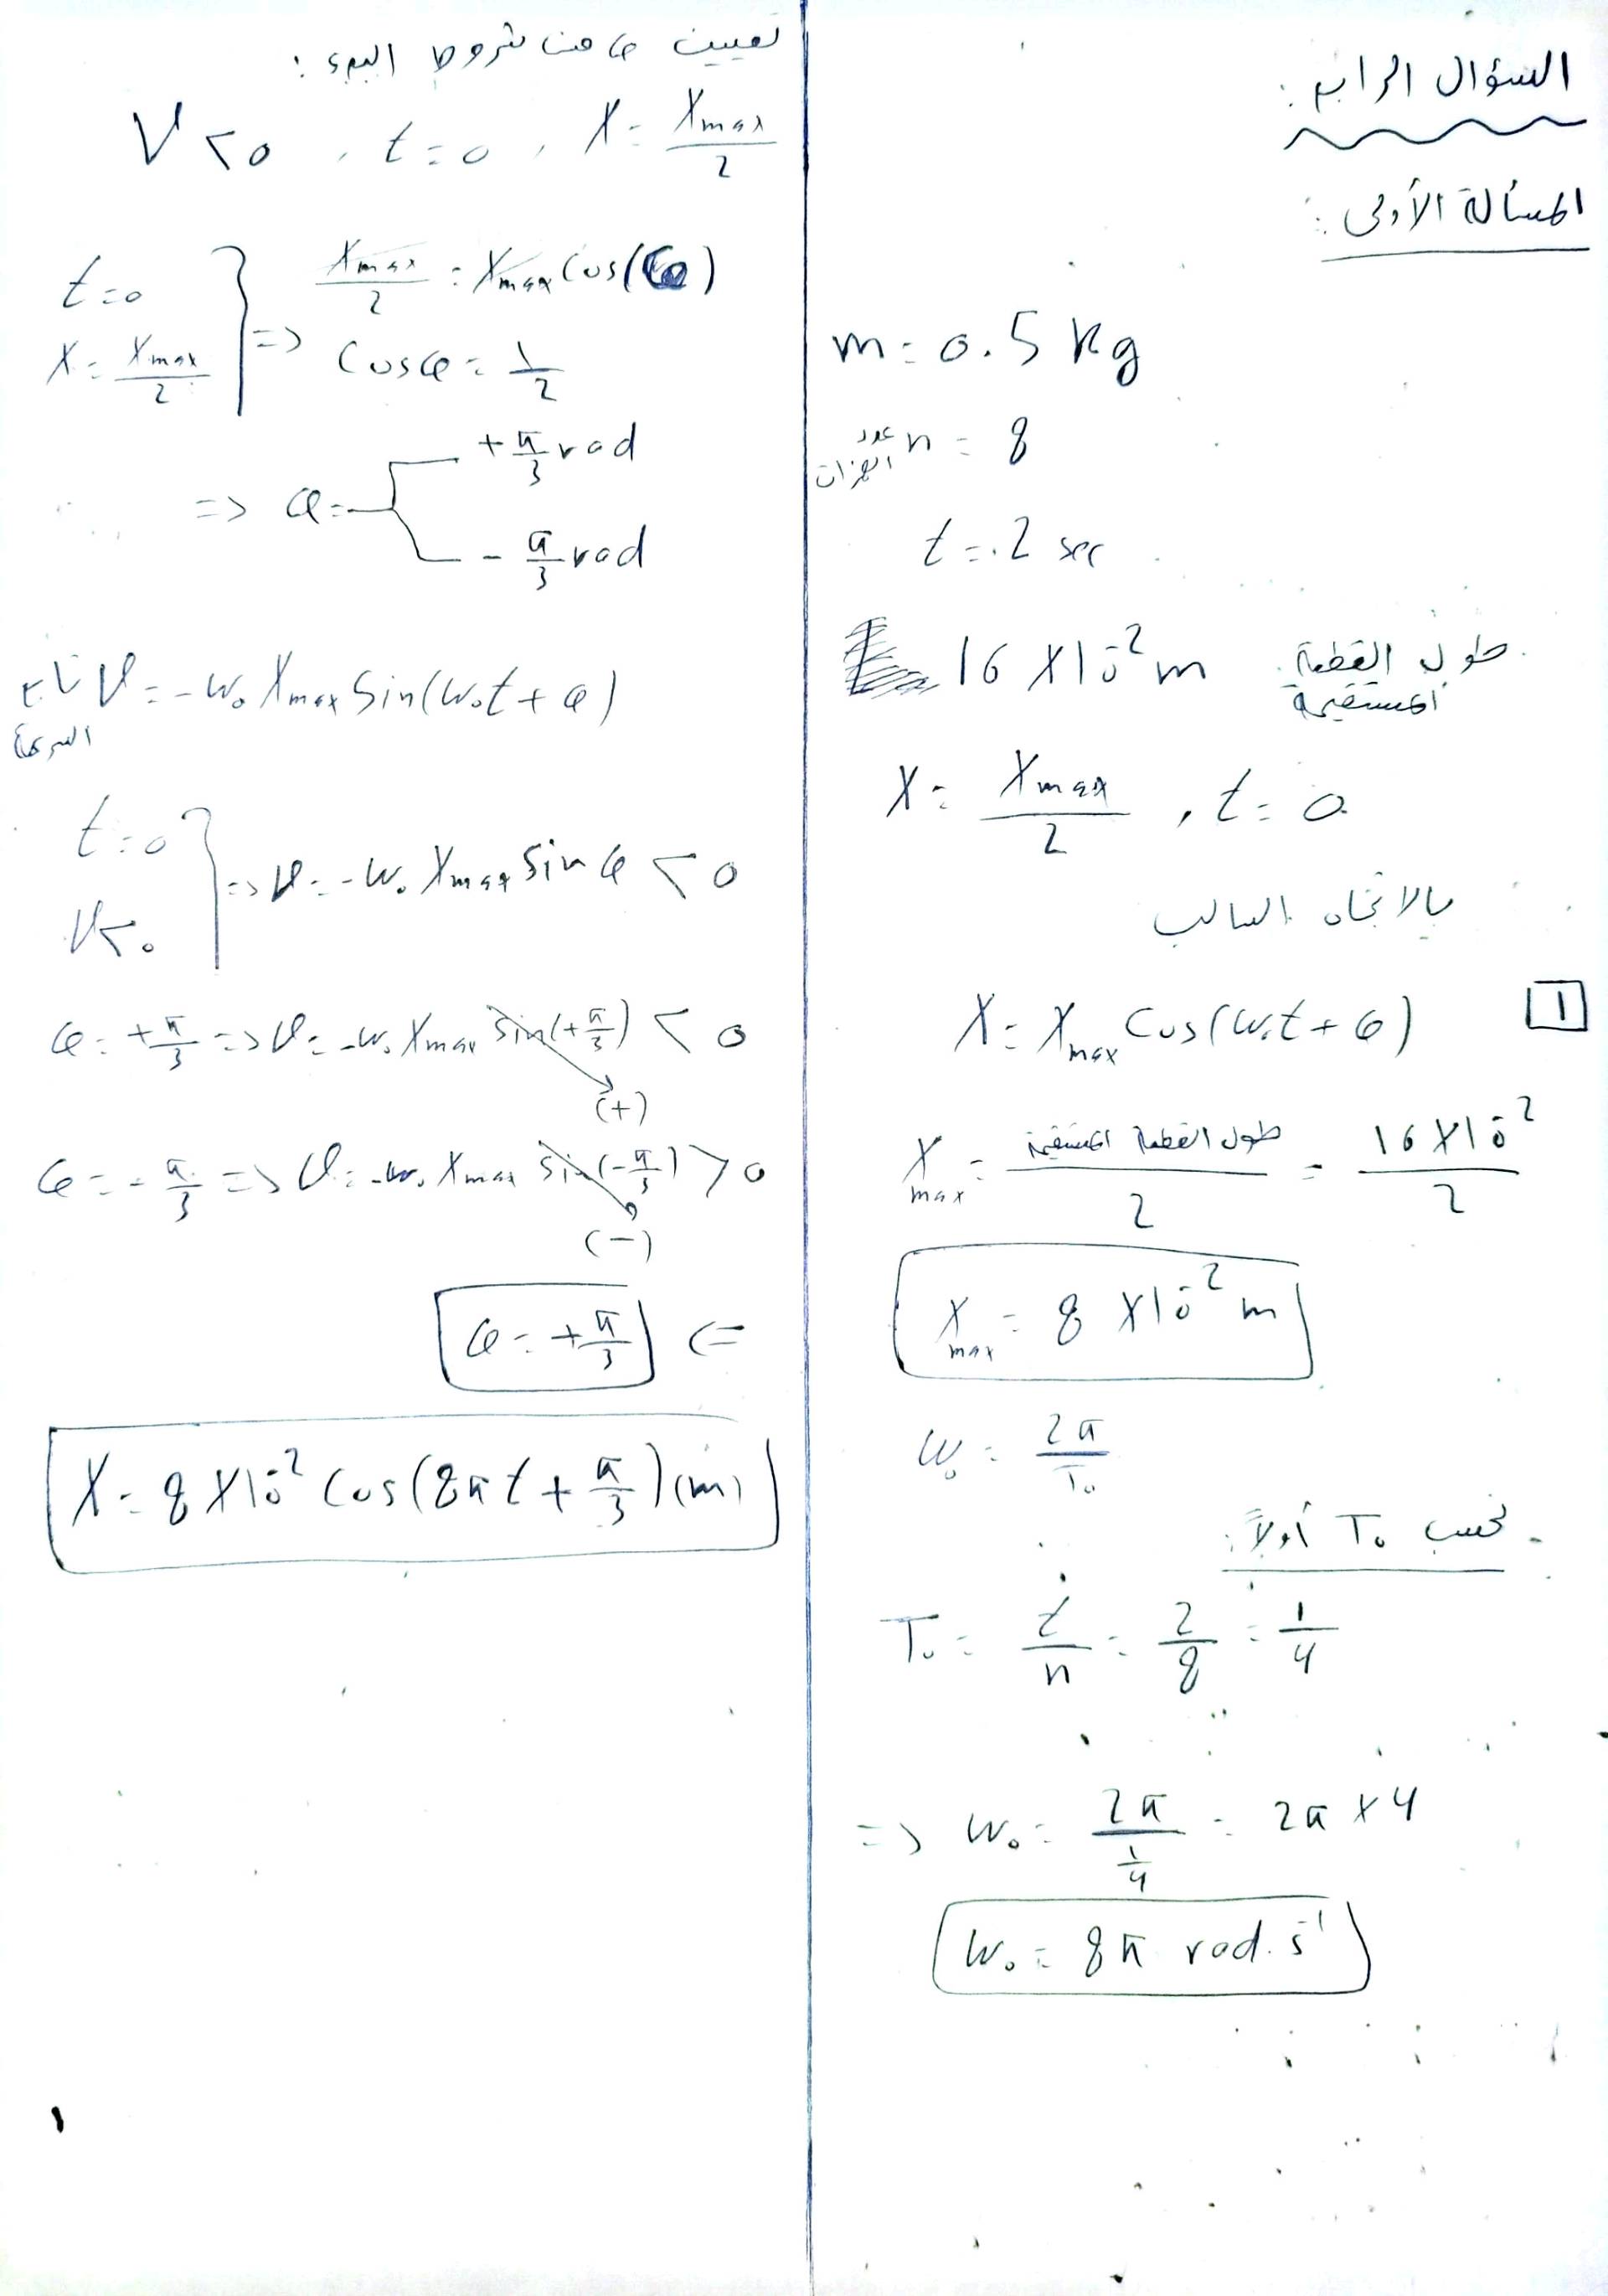 السؤال الرابع :
المسألة الأولى :
m = 0.5 kg
عدد الهزات n = 8
t = 2 sec
16 × 10⁻² m طول القطعة المستقيمة
X = Xmax/2 , t = 0
بالاتجاه السالب
1 X = Xmax Cos(ω₀t + φ)
Xmax = طول القطعة المستقيمة/2 = 16 × 10⁻²/2
Xmax = 8 × 10⁻² m
ω₀ = 2π/T₀
نحسب T₀ أولاً :
T₀ = t/n = 2/8 = 1/4
=> ω₀ = 2π/(1/4) = 2π × 4
ω₀ = 8π rad.s⁻¹
تعيين φ من شروط البدء :
V < 0 , t = 0 , X = Xmax/2
t = 0
X = Xmax/2
=> Xmax/2 = Xmax Cos(φ)
Cosφ = 1/2
=> φ =
+ π/3 rad
- π/3 rad
تابع السرعة V = -ω₀ Xmax Sin(ω₀t + φ)
t = 0
V < 0
=> V = -ω₀ Xmax Sin φ < 0
φ = + π/3 => V = -ω₀ Xmax Sin(+π/3) < 0
(+)
φ = - π/3 => V = -ω₀ Xmax Sin(-π/3) > 0
(-)
φ = + π/3 <=
X = 8 × 10⁻² Cos(8πt + π/3) (m)